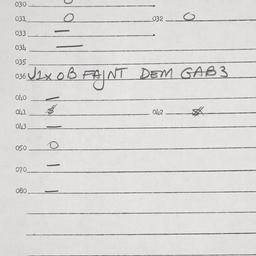 030
031 O 032 O
033 —
034 —
035
036 J1x OB FAJNT DEM GAB3
040 —
041 $ 042 $
043 —
050 O
070 —
080 —